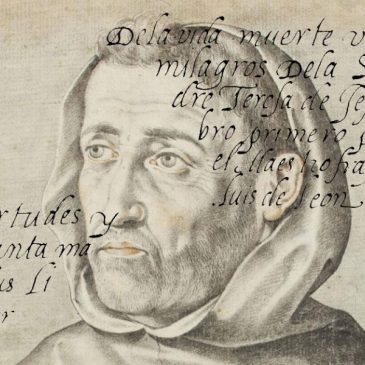 Dela vida muerte v
milagros Dela S
dre Teresa de Je
bro primero
el Maestro fray
Luis de Leon
rtudes y
anta ma
us Li
r